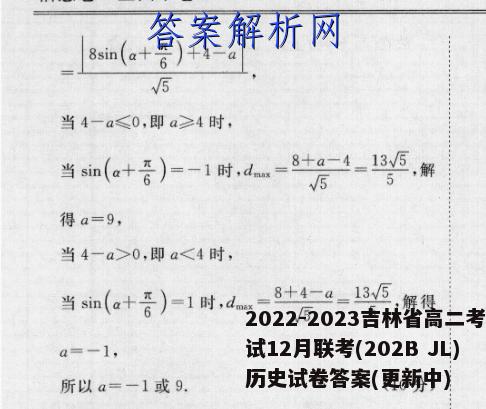 答案解析网
=|8sin(α+π/6)+4-a|/√5,
当 4-a≤0,即 a≥4 时,
当 sin(α+π/6)=-1 时,d_max=(8+a-4)/√5=13√5/5,解
得 a=9,
当 4-a>0,即 a<4 时,
当 sin(α+π/6)=1 时,d_max=(8+4-a)/√5=13√5/5,解得
a=-1,
所以 a=-1 或 9.
2022-2023吉林省高二考
试12月联考(202B JL)
历史试卷答案(更新中)